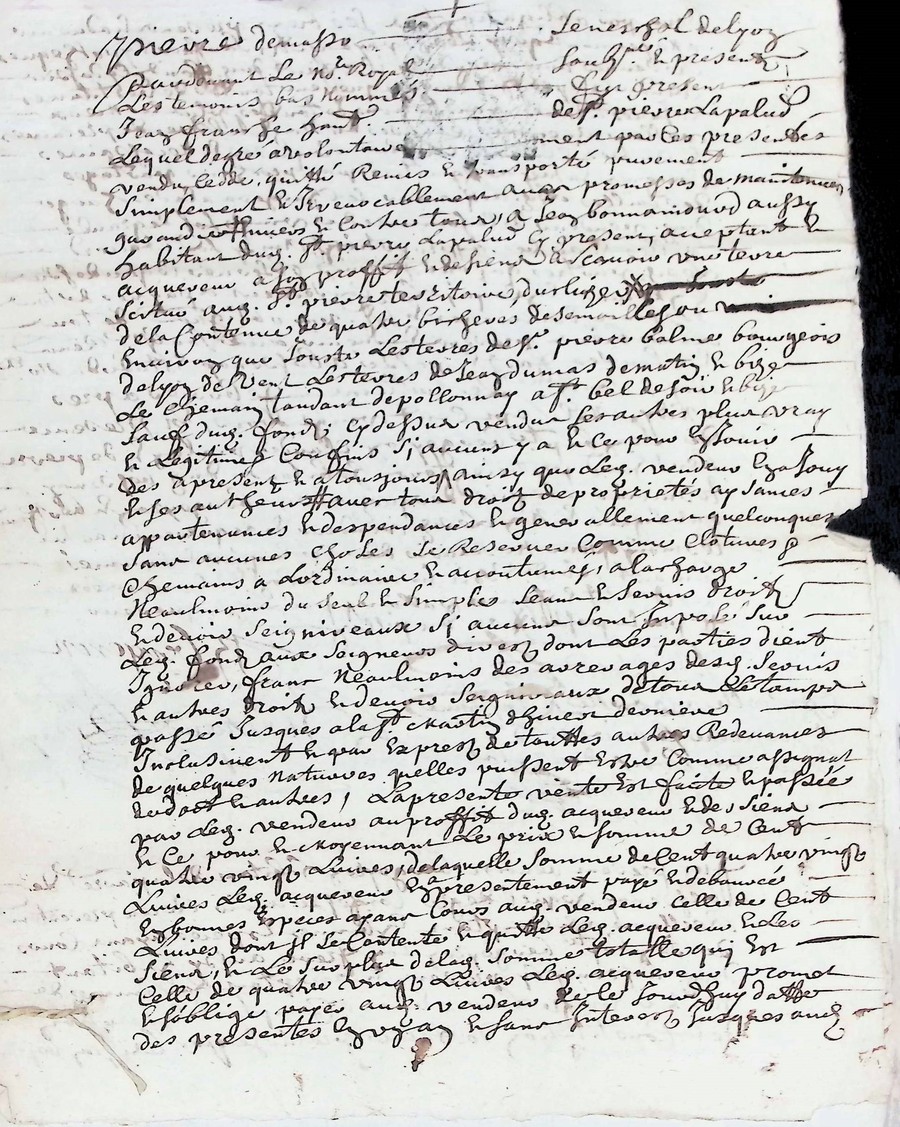 pierre demasso Seneschal de Lyon
Pardevant Le No.re Royal Soubs.né Et presents
Les temoins bas Nommés fut present
Jean franche hont de St. pierre Lapalud
Lequel de gré a volontaire ment par Ces presentes
vendu, Cedde, quitté Remis Et transporté purement
Simplement Et Irrevocablement avec promesses de maintenir
garandir Envers Et Contre tous, a Jean bonnamour aussy
habitant dud. St. pierre Lapalud Cy present, acceptant Et
acquereur a Son proffit Et des siens a scavoir une terre
Scitué aud. St. pierre territoire du
de la Contenue de quatre bicherés de semailles ou
Environ que Jouste Les terres de Sr. pierre balme bourgeois
de Lyon de vent Les terres de Jean dumas de matin Et bize
Le Chemain tandant de pollionnay a St. bel de Soir Et bize
Sauf dud. fondz Cy dessus vendu Ses autres plus vray
Et Legitimes Confins Si aucuns y a Et Ce pour En Jouir
des apresent Et a tousjours ainsy que Led. vendeur En a Jouy
Et Ses autheurs avec tous droitz de proprietés aysances
appartenances Et despendances Et generallement quelconques
Sans aucunes Choses Se Reserver Comme Clotures
Chemains a Lordinaire Et accoutumés, a la charge
Neaulmoins du Seul Et Simples Ceans Et Servis droitz
Et devoir Seigniveaux Si aucuns Sont Imposé Sur
Led. fondz aux Seigneurs divers dont Les parties dient
Ignorer, franc Neaulmoins des arrerages desd. Servis
Et autres droitz Et devoir Seigniveaux de tous Le tamps
passé Jusques a la St. Martin dhiver derniere
Inclusivement Et par Exprest de touttes autres Redevances
de quelques Natures quelles puissent Estre Comme assignat
de dott Et autres, La presente vente Est faite Et passée
par Led. vendeur au proffit dud. acquereur Et des Siens
Et Ce pour Et Moyennant Le prix Et Somme de Cent
quatre vingt Livres, de laquelle Somme de Cent quatre vingt
Livres Led. acquereur En a presentement payé Et debourcé
En bonnes Especes ayant Cours aud. vendeur Celle de Cent
Livres dont jl Se Contente Et quitte Led. acquereur Et Les
Siens, Et Le Surplus de lad. Somme totalle quj Est
Celle de quatre vingt Livres Led. acquereur promet
Et Soblige payer aud. vendeur de ce Jourdhuy datte
des presentes En un an Et Sans Interest Jusques aud.